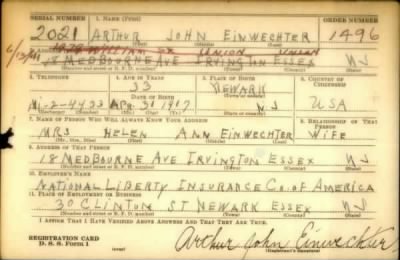 SERIAL NUMBER 1. NAME (Print) ORDER NUMBER
2021 ARTHUR JOHN EINWECHTER 1496
(First) (Middle) (Last)
6/13/41 1039 WILLIAM ST UNION UNION
18 MEDBOURNE AVE IRVINGTON ESSEX NJ
(Number and street or R. F. D. number) (Town) (County) (State)
3. TELEPHONE 4. AGE IN YEARS 5. PLACE OF BIRTH 6. COUNTRY OF CITIZENSHIP
33 NEWARK
DATE OF BIRTH
2-4433 APR 31 1907 N.J USA
(Exchange) (Number) (Mo.) (Day) (Yr.) (State or country)
7. NAME OF PERSON WHO WILL ALWAYS KNOW YOUR ADDRESS 8. RELATIONSHIP OF THAT PERSON
MRS HELEN ANN EINWECHTER WIFE
(Mr., Mrs., Miss) (First) (Middle) (Last)
9. ADDRESS OF THAT PERSON
18 MEDBOURNE AVE IRVINGTON ESSEX NJ
(Number and street or R. F. D. number) (Town) (County) (State)
10. EMPLOYER'S NAME
NATIONAL LIBERTY INSURANCE CO. OF AMERICA
11. PLACE OF EMPLOYMENT OR BUSINESS
30 CLINTON ST NEWARK ESSEX NJ
(Number and street or R. F. D. number) (Town) (County) (State)
I AFFIRM THAT I HAVE VERIFIED ABOVE ANSWERS AND THAT THEY ARE TRUE.
REGISTRATION CARD
D. S. S. Form 1 (over) Arthur John Einwechter
(Registrant's signature)